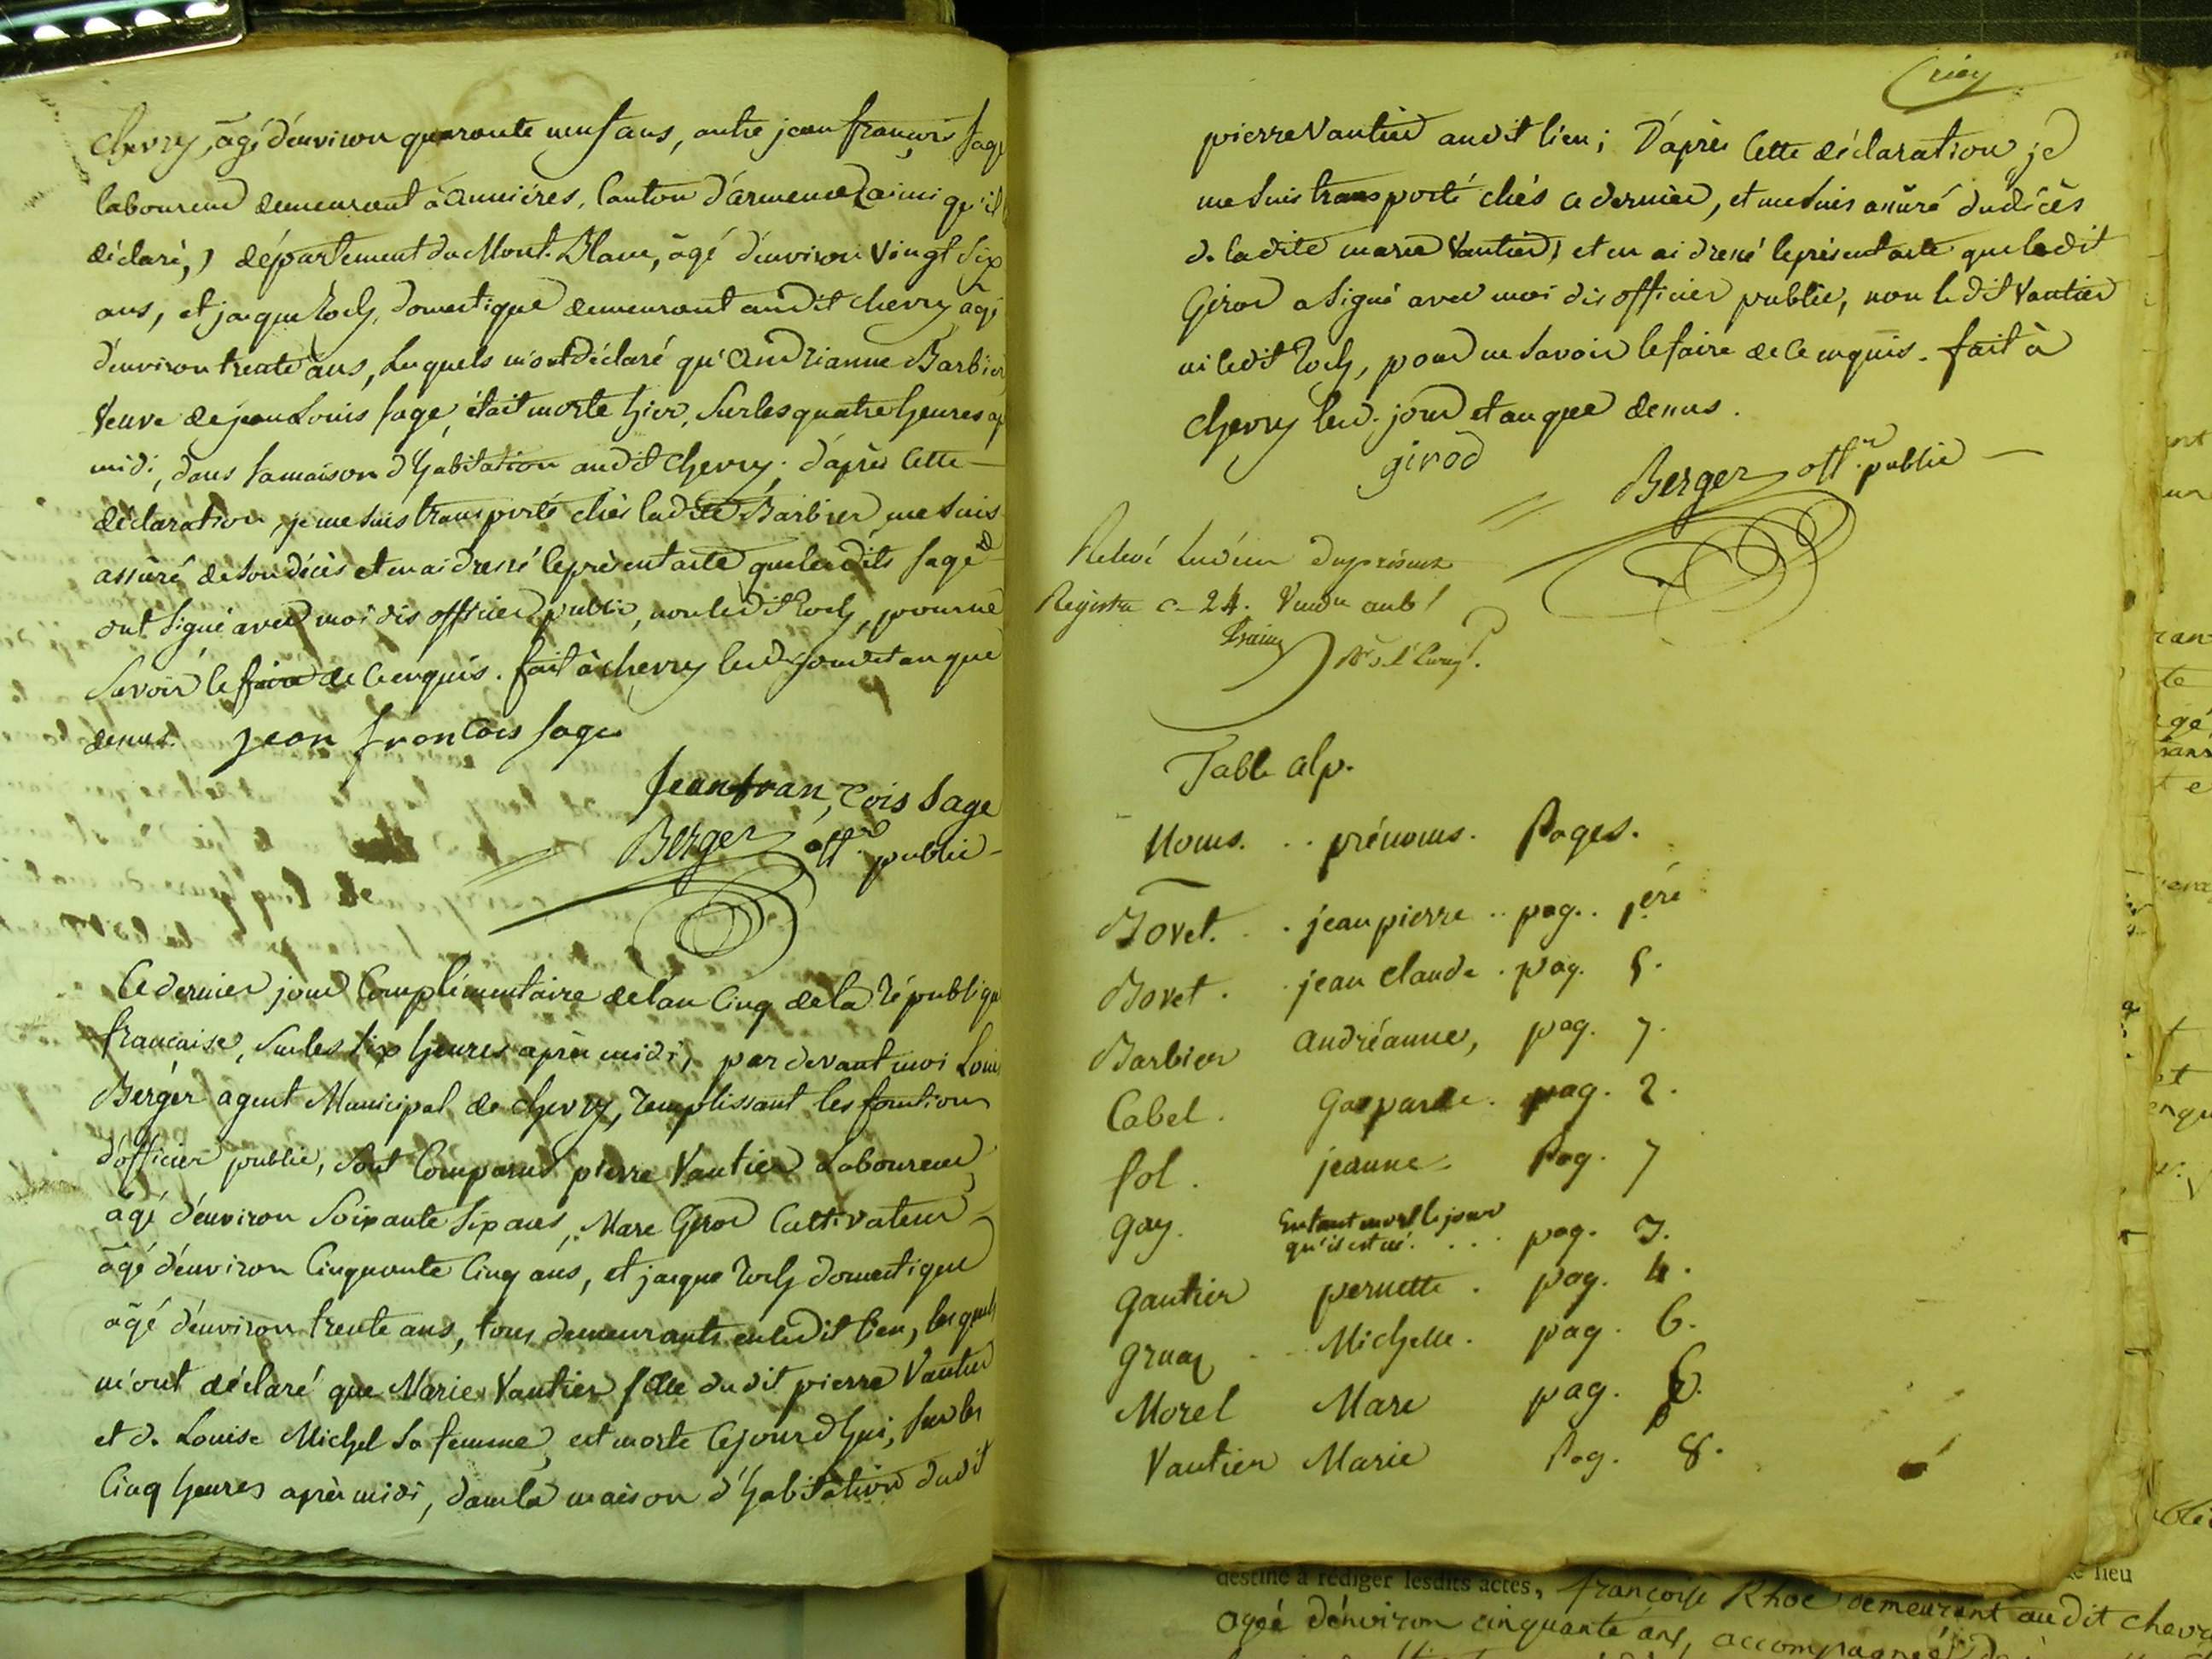 chevry, âgé d'environ quaronte neuf ans, autre jean françois sage
laboureur demeurant à annières, Canton d'armence (ainsi qu'il
déclaré,) département du Mont-Blanc, âgé d'environ vingt six
ans, et jacque Roch, domestique demeurant audit chevry âgé
d'environ trente ans, Lesquels m'ont déclaré qu'andrianne Barbier
veuve de jean Louis sage, était morte hier, sur les quatre heures ap
midi, dans sa maison d'habitation audit chevry; d'après cette
déclaration, je me suis transporté chés ladite Barbier me suis
assûré de son décès et en ai dressé le présent acte que lesdits sage
ont signé avec moi dis officier public, non ledit Roch, pour ne
savoir le faire de ce enquis. fait à chevry lesd. jour et an que
dessus. jean francois sage
jean fran, cois sage
Berger off.er public
Ce dernier jour Complémentaire de l'an Cinq de la république
française, sur les six heures après midi, par devant moi Louis
Berger agent Municipal de chevry, remplissant les fonctions
d'officier public, sont Comparus pierre Vautier Laboureur
âgé d'environ soixante six ans, Marc Girod Cultivateur
âgé d'environ Cinquante Cinq ans, et jacque Roch domestique
âgé d'environ trente ans, tous demeurants audit lieu, lesquels
m'ont déclaré que Marie Vautier fille dudit pierre Vautier
et de Louise Michel sa femme, est morte cejourd'hui, sur les
Cinq heures après midi, dans la maison d'habitation dudit
Cinq
pierre Vautier audit lieu; D'après Cette déclaration je
me suis transporté chés ce dernier, et me suis assûré du décès
de ladite marie Vautier, et en ai dressé le présent acte que ledit
Girod a signé avec moi dis officier public, non ledit Vautier
ni ledit Roch, pour ne savoir le faire de ce enquis. fait à
chevry lesd. jour et an que dessus.
girod
Berger off.er public
Relevé du présent
Registre ce 24. Vend.re an 6
Table alp.
Noms. .. prénoms. Pages.
Bovet. . . jean pierre .. pag.. 1ère
Bovet . . jean claude . pag. 5.
Barbier andréanne, pag. 7.
Cabel . Gasparde. pag. 2.
fol . jeanne pag. 7
gay. Enfant mort le jour
qu'il est né. . . . pag. 3.
gautier pernette . pag. 4.
gruaz . . . Michelle . pag. 6.
Morel Marc pag. 6.
Vautier Marie Pag. 8.
destiné à rédiger lesdits actes, françoise Rhoc demeurant audit chevry
le lieu
agée d'environ cinquante ans, accompagnée